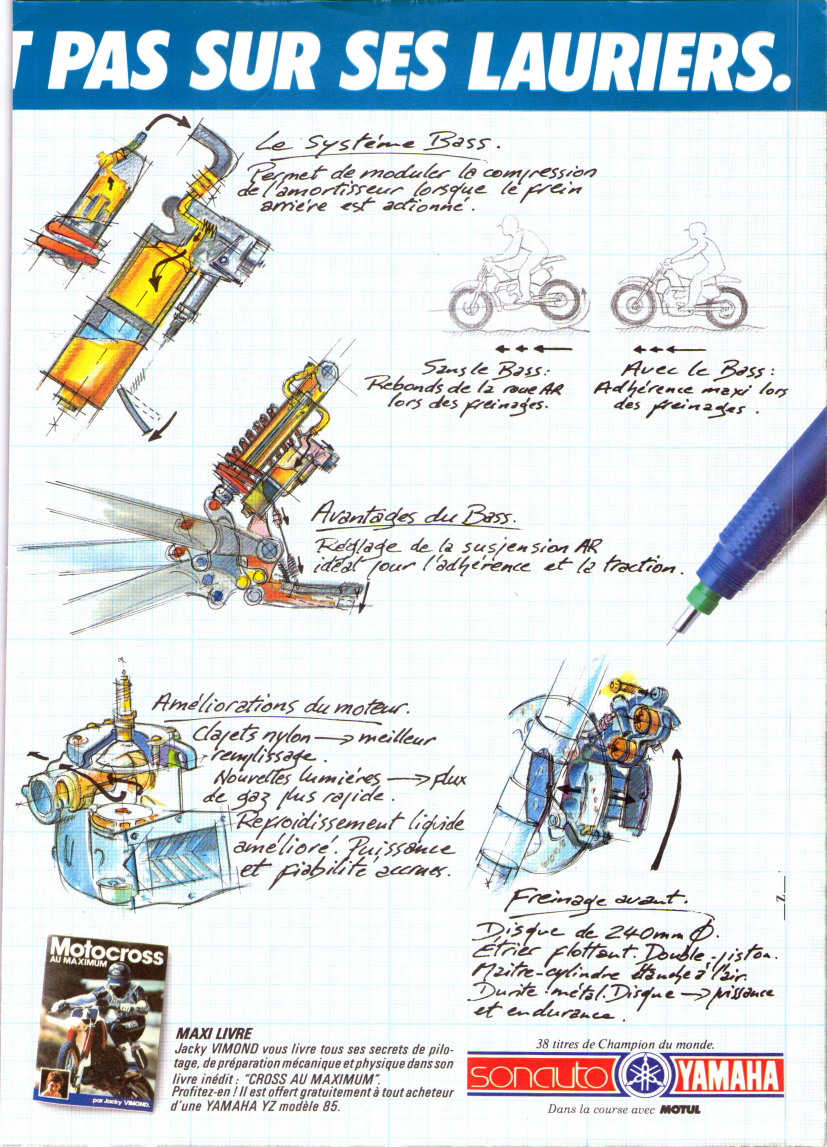 T PAS SUR SES LAURIERS.
Le Système Bass.
Permet de moduler la compression
de l'amortisseur lorsque le frein
arrière est actionné.
Sans le Bass:
Rebonds de la roue AR
lors des freinages.
Avec le Bass:
Adhérence maxi lors
des freinages.
Avantages du Bass.
Réglage de la suspension AR
idéal pour l'adhérence et la traction.
Améliorations du moteur.
Clapets nylon → meilleur
remplissage.
Nouvelles lumières → flux
de gaz plus rapide.
Refroidissement liquide
amélioré. Puissance
et fiabilité accrues.
Freinage avant.
Disque de 240mm Ø.
Etrier flottant. Double-piston.
Maître-cylindre étanche à l'air.
Durite métal. Disque → puissance
et endurance.
Motocross
AU MAXIMUM
par Jacky VIMOND.
MAXI LIVRE
Jacky VIMOND vous livre tous ses secrets de pilo-
tage, de préparation mécanique et physique dans son
livre inédit : "CROSS AU MAXIMUM".
Profitez-en ! Il est offert gratuitement à tout acheteur
d'une YAMAHA YZ modèle 85.
38 titres de Champion du monde.
sonauto YAMAHA
Dans la course avec MOTUL